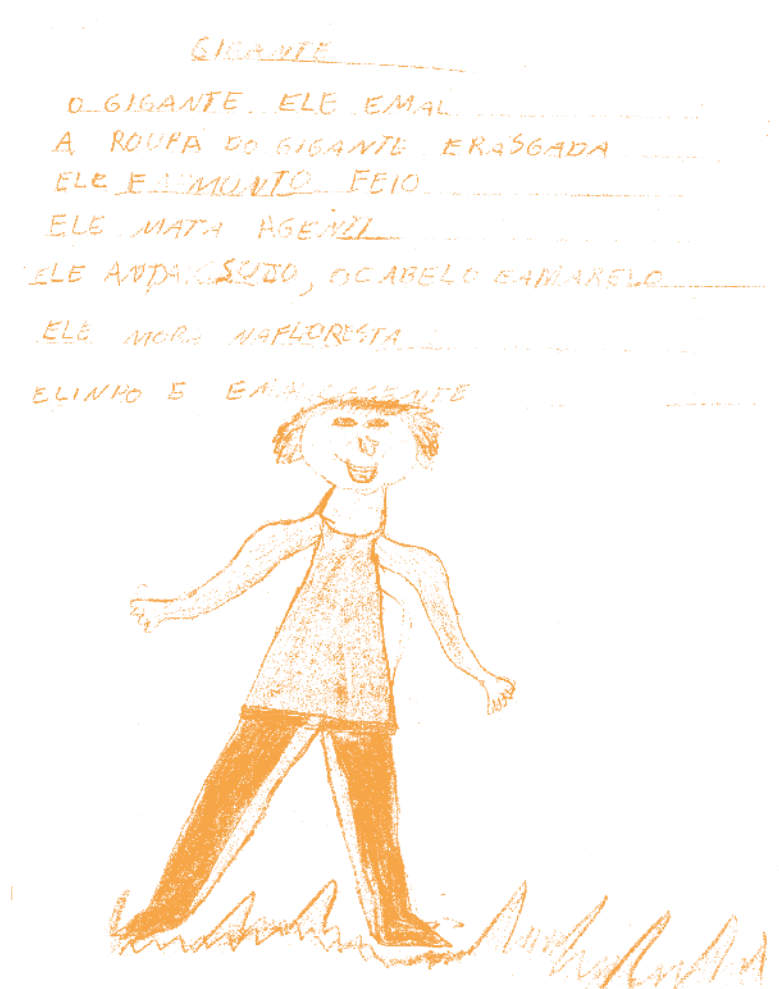 GIGANTE
O GIGANTE ELE EMAL
A ROUPA DO GIGANTE ERASGADA
ELE E MUNTO FEIO
ELE MATA AGENTI
ELE ANDA SUJO, OCABELO EAMARELO
ELE MORA NAFLORESTA
ELINPO E